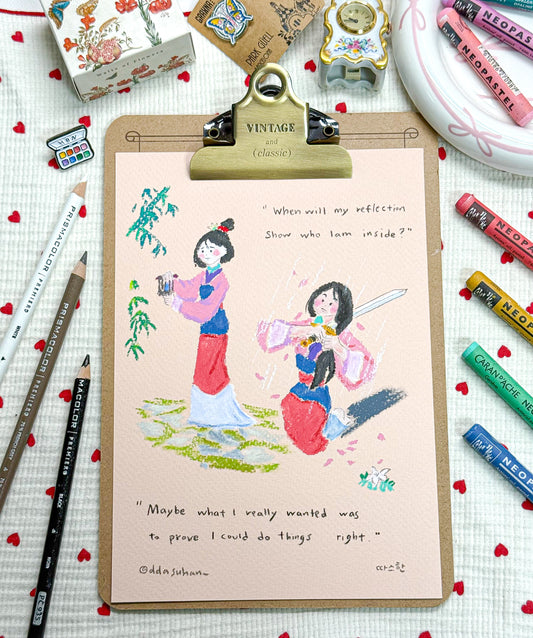 DARK QUELL
NEOPASTEL
NEOPASTEL
VINTAGE
and
(classic)
"When will my reflection
Show who I am inside?"
PRISMACOLOR PREMIER
WHITE
PRISMACOLOR PREMIER
PRISMACOLOR PREMIER
BLACK
PC 935
NEOPA
CARAN D'ACHE NEO
NEOPA
"Maybe what I really wanted was
to prove I could do things right."
@ddasuhan_
따스한